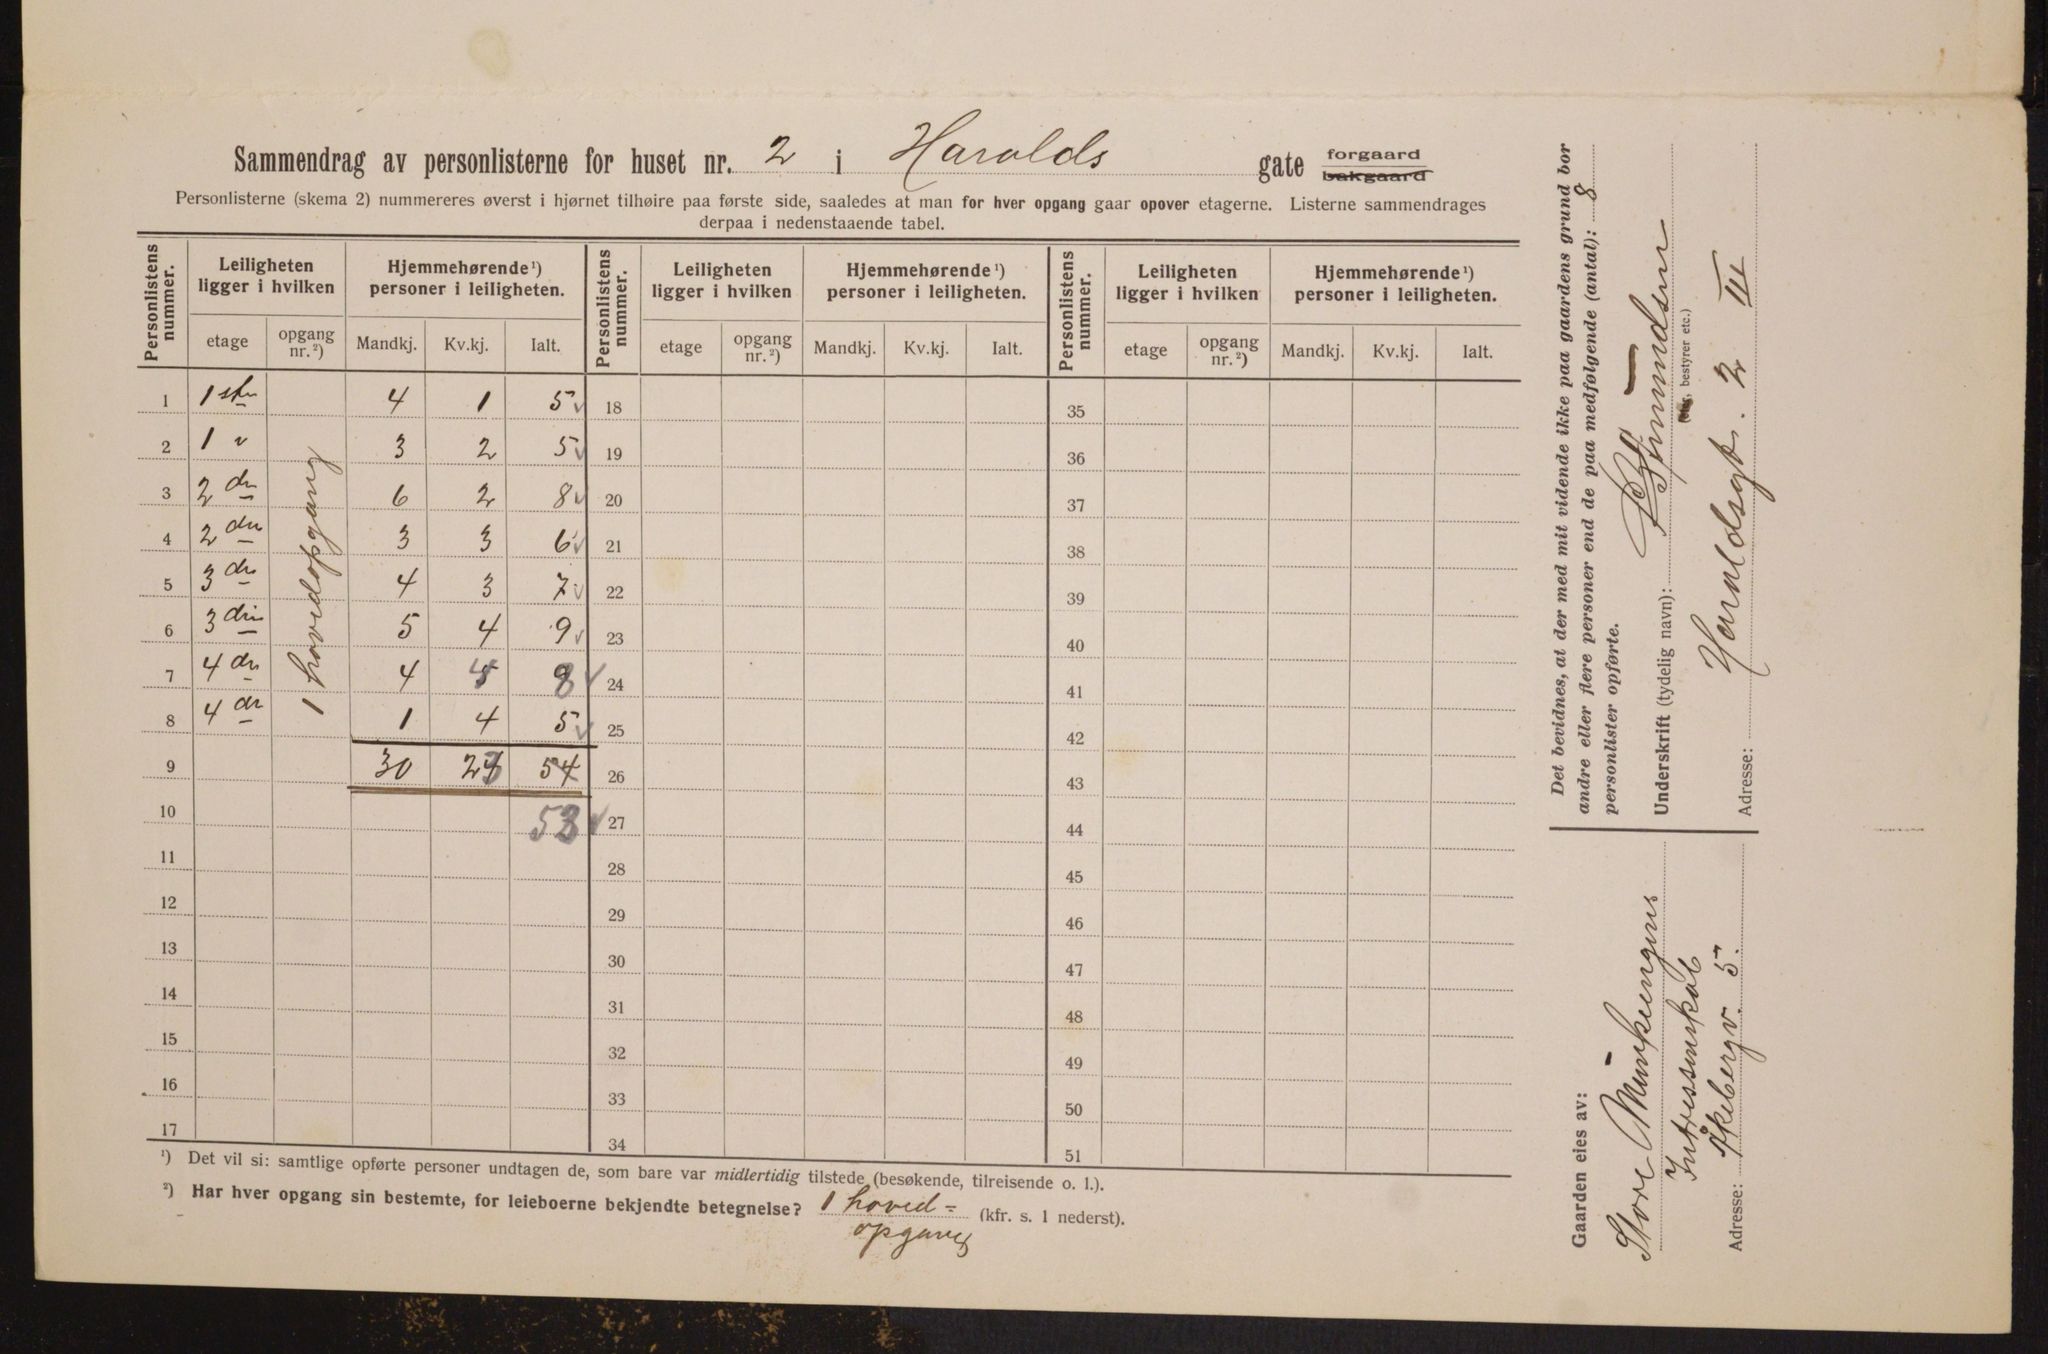 Sammendrag av personlisterne for huset nr. 2 i Haralds gate forgaard bakgaard
Personlisterne (skema 2) nummereres øverst i hjørnet tilhøire paa første side, saaledes at man for hver opgang gaar opover etagerne. Listerne sammendrages
derpaa i nedenstaaende tabel.
Personlistens nummer. Leiligheten ligger i hvilken Hjemmehørende ¹) personer i leiligheten. Personlistens nummer. Leiligheten ligger i hvilken Hjemmehørende ¹) personer i leiligheten. Personlistens nummer. Leiligheten ligger i hvilken Hjemmehørende ¹) personer i leiligheten.
etage opgang nr. ²) Mandkj. Kv.kj. Ialt. etage opgang nr. ²) Mandkj. Kv.kj. Ialt. etage opgang nr. ²) Mandkj. Kv.kj. Ialt.
1 1ste 4 1 5 18 35
2 1 3 2 5 19 36
3 2den 6 2 8 20 37
4 2den 3 3 6 21 38
5 3die 4 3 7 22 39
6 3die 5 4 9 23 40
7 4de 4 4 8 24 41
8 4de 1 4 5 25 42
1 hovedopgang
9 30 23 54 26 43
10 53 27 44
11 28 45
12 29 46
13 30 47
14 31 48
15 32 49
16 33 50
17 34 51
¹) Det vil si: samtlige opførte personer undtagen de, som bare var midlertidig tilstede (besøkende, tilreisende o. l.).
²) Har hver opgang sin bestemte, for leieboerne bekjendte betegnelse? 1 hoved= (kfr. s. 1 nederst).
opgang
Det bevidnes, at der med mit vidende ikke paa gaardens grund bor
andre eller flere personer end de paa medfølgende (antal): 8
personlister opførte.
Underskrift (tydelig navn):
bestyrer etc.)
Haraldsgt. 2 III
Adresse:
Gaarden eies av:
Store Munkengens
Intressentskab
Adresse: Åkebergv. 5.